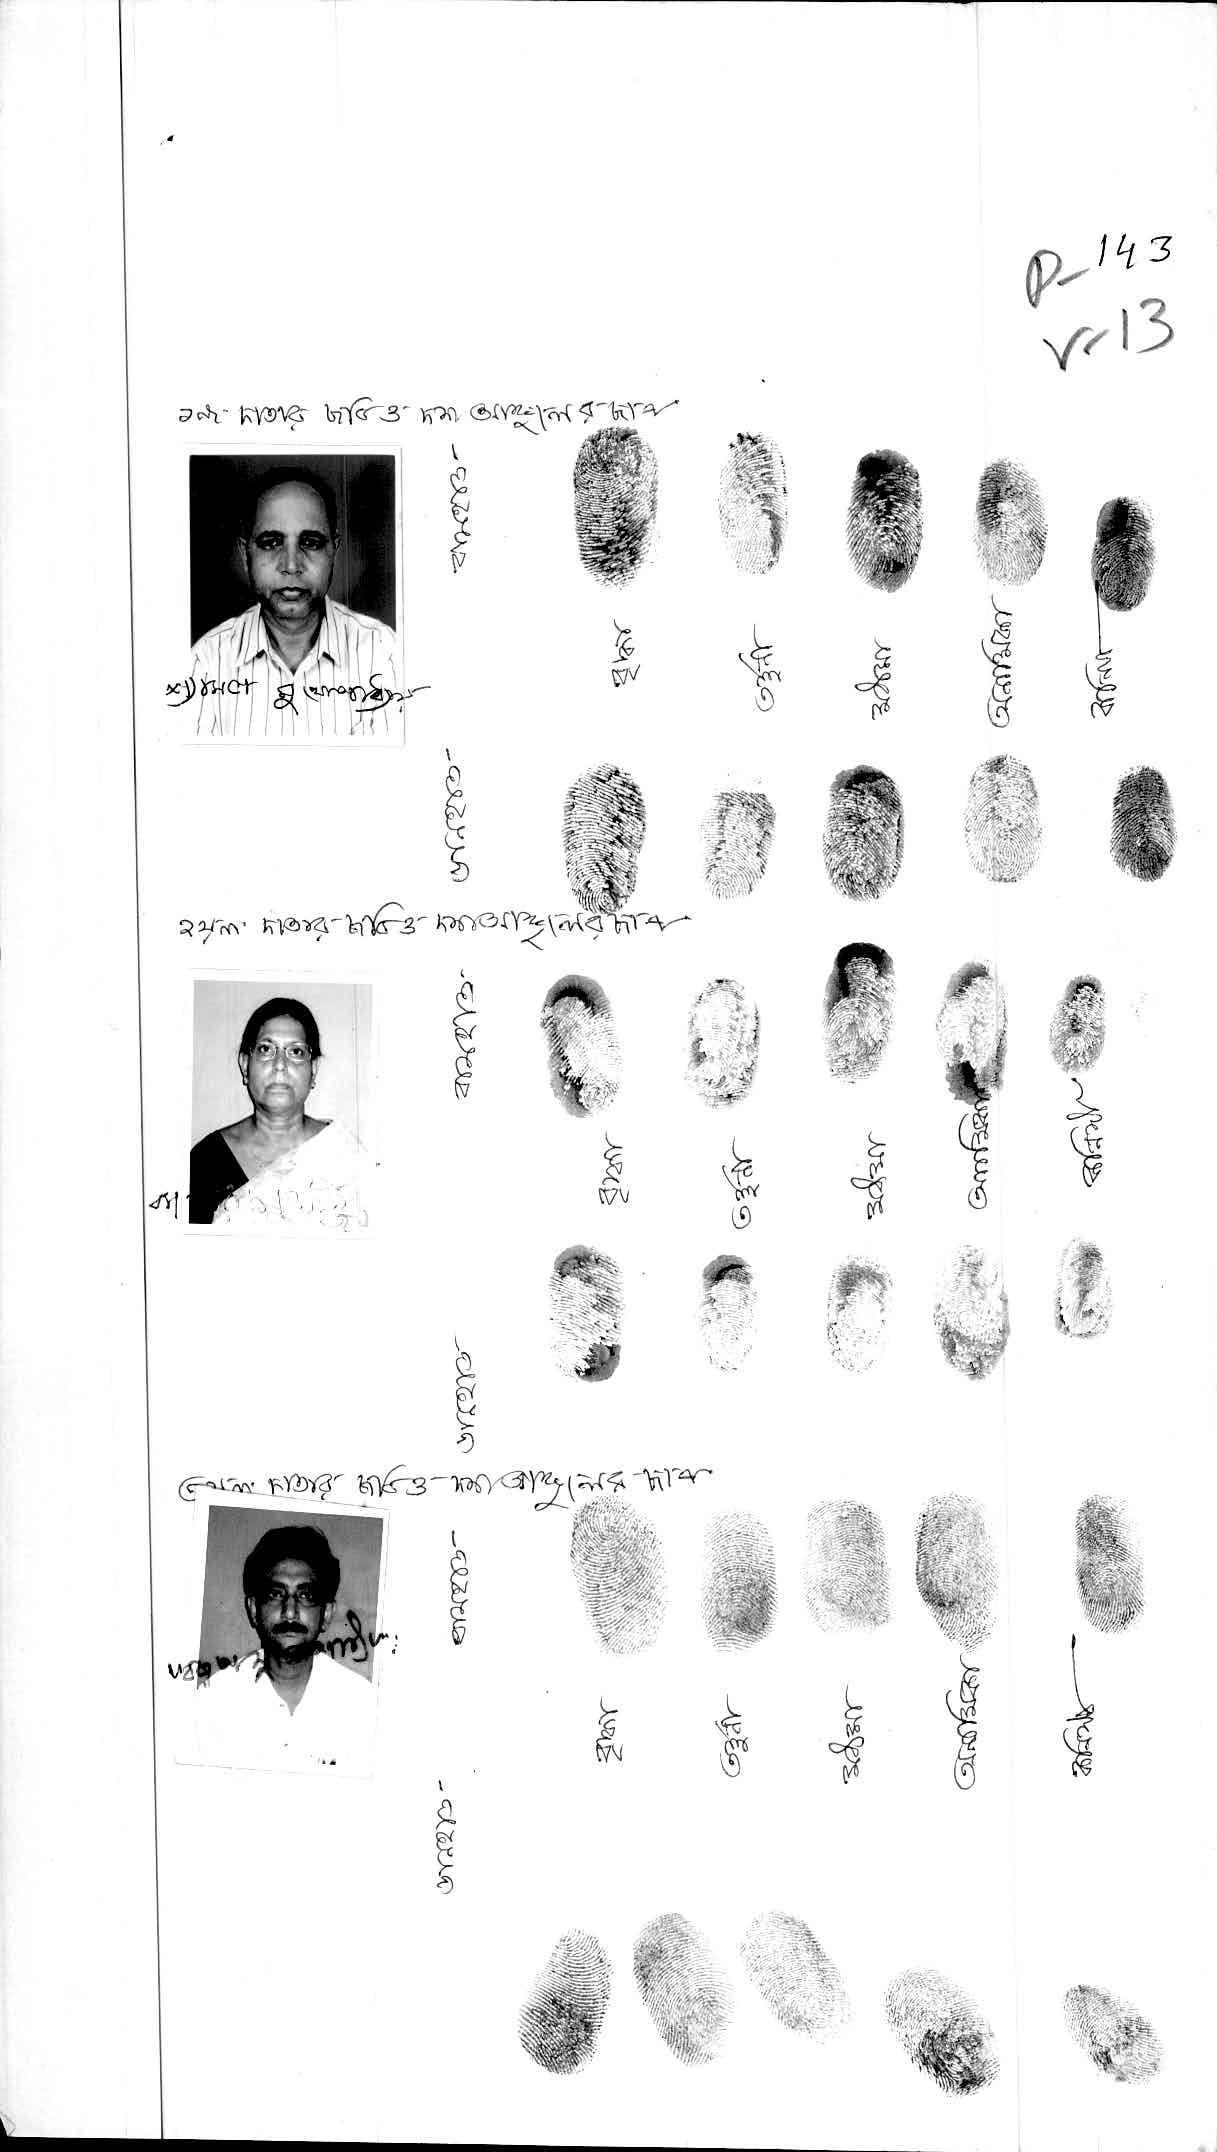 P-143
V-13
১নং দাতার ছবি ও দশ আঙ্গুলের ছাপ
ডানহাত
বৃদ্ধা
তর্জনী
মধ্যমা
অনামিকা
কনিষ্ঠা
মুখোপাধ্যায়
বামহাত
২য়নং দাতার ছবি ও দশ আঙ্গুলের ছাপ
ডানহাত
বৃদ্ধা
তর্জনী
মধ্যমা
অনামিকা
কনিষ্ঠা
বামহাত
৩য়নং দাতার ছবি ও দশ আঙ্গুলের ছাপ
ডানহাত
বৃদ্ধা
তর্জনী
মধ্যমা
অনামিকা
কনিষ্ঠা
বামহাত